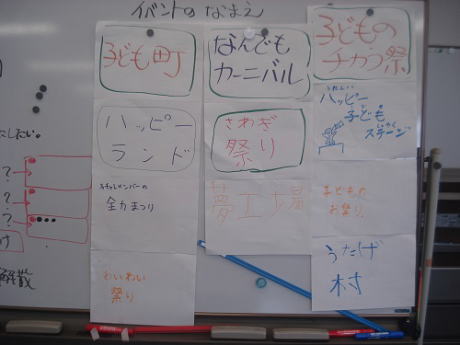 イベントのなまえ
子ども町
ハッピー
ランド
チャレンメンバーの
全力まつり
わいわい
祭り
なんでも
カーニバル
さわぎ
祭り
夢工場
子どもの
チカラ祭
ハッピー
子ども
ステージ
子どもの
お祭り
うたげ
村
たしたい。
?
?
?
解散